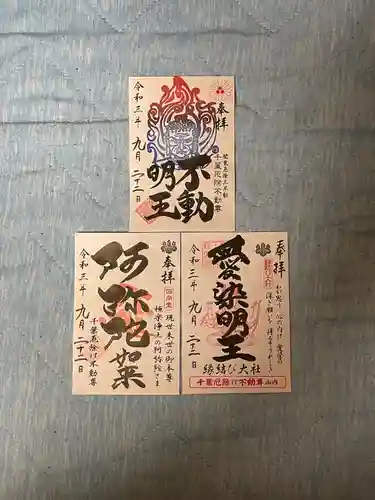 奉拝
関東厄除三不動
千葉厄除不動尊
不動
明王
令和三年九月二十二日
奉拝
現世来世の御本尊
極楽浄土の阿弥陀さま
阿弥陀如来
千葉厄除け不動尊
令和三年九月二十二日
奉拝
愛染明王
令和三年九月二十二日
縁結び大社
千葉厄除け不動尊山内